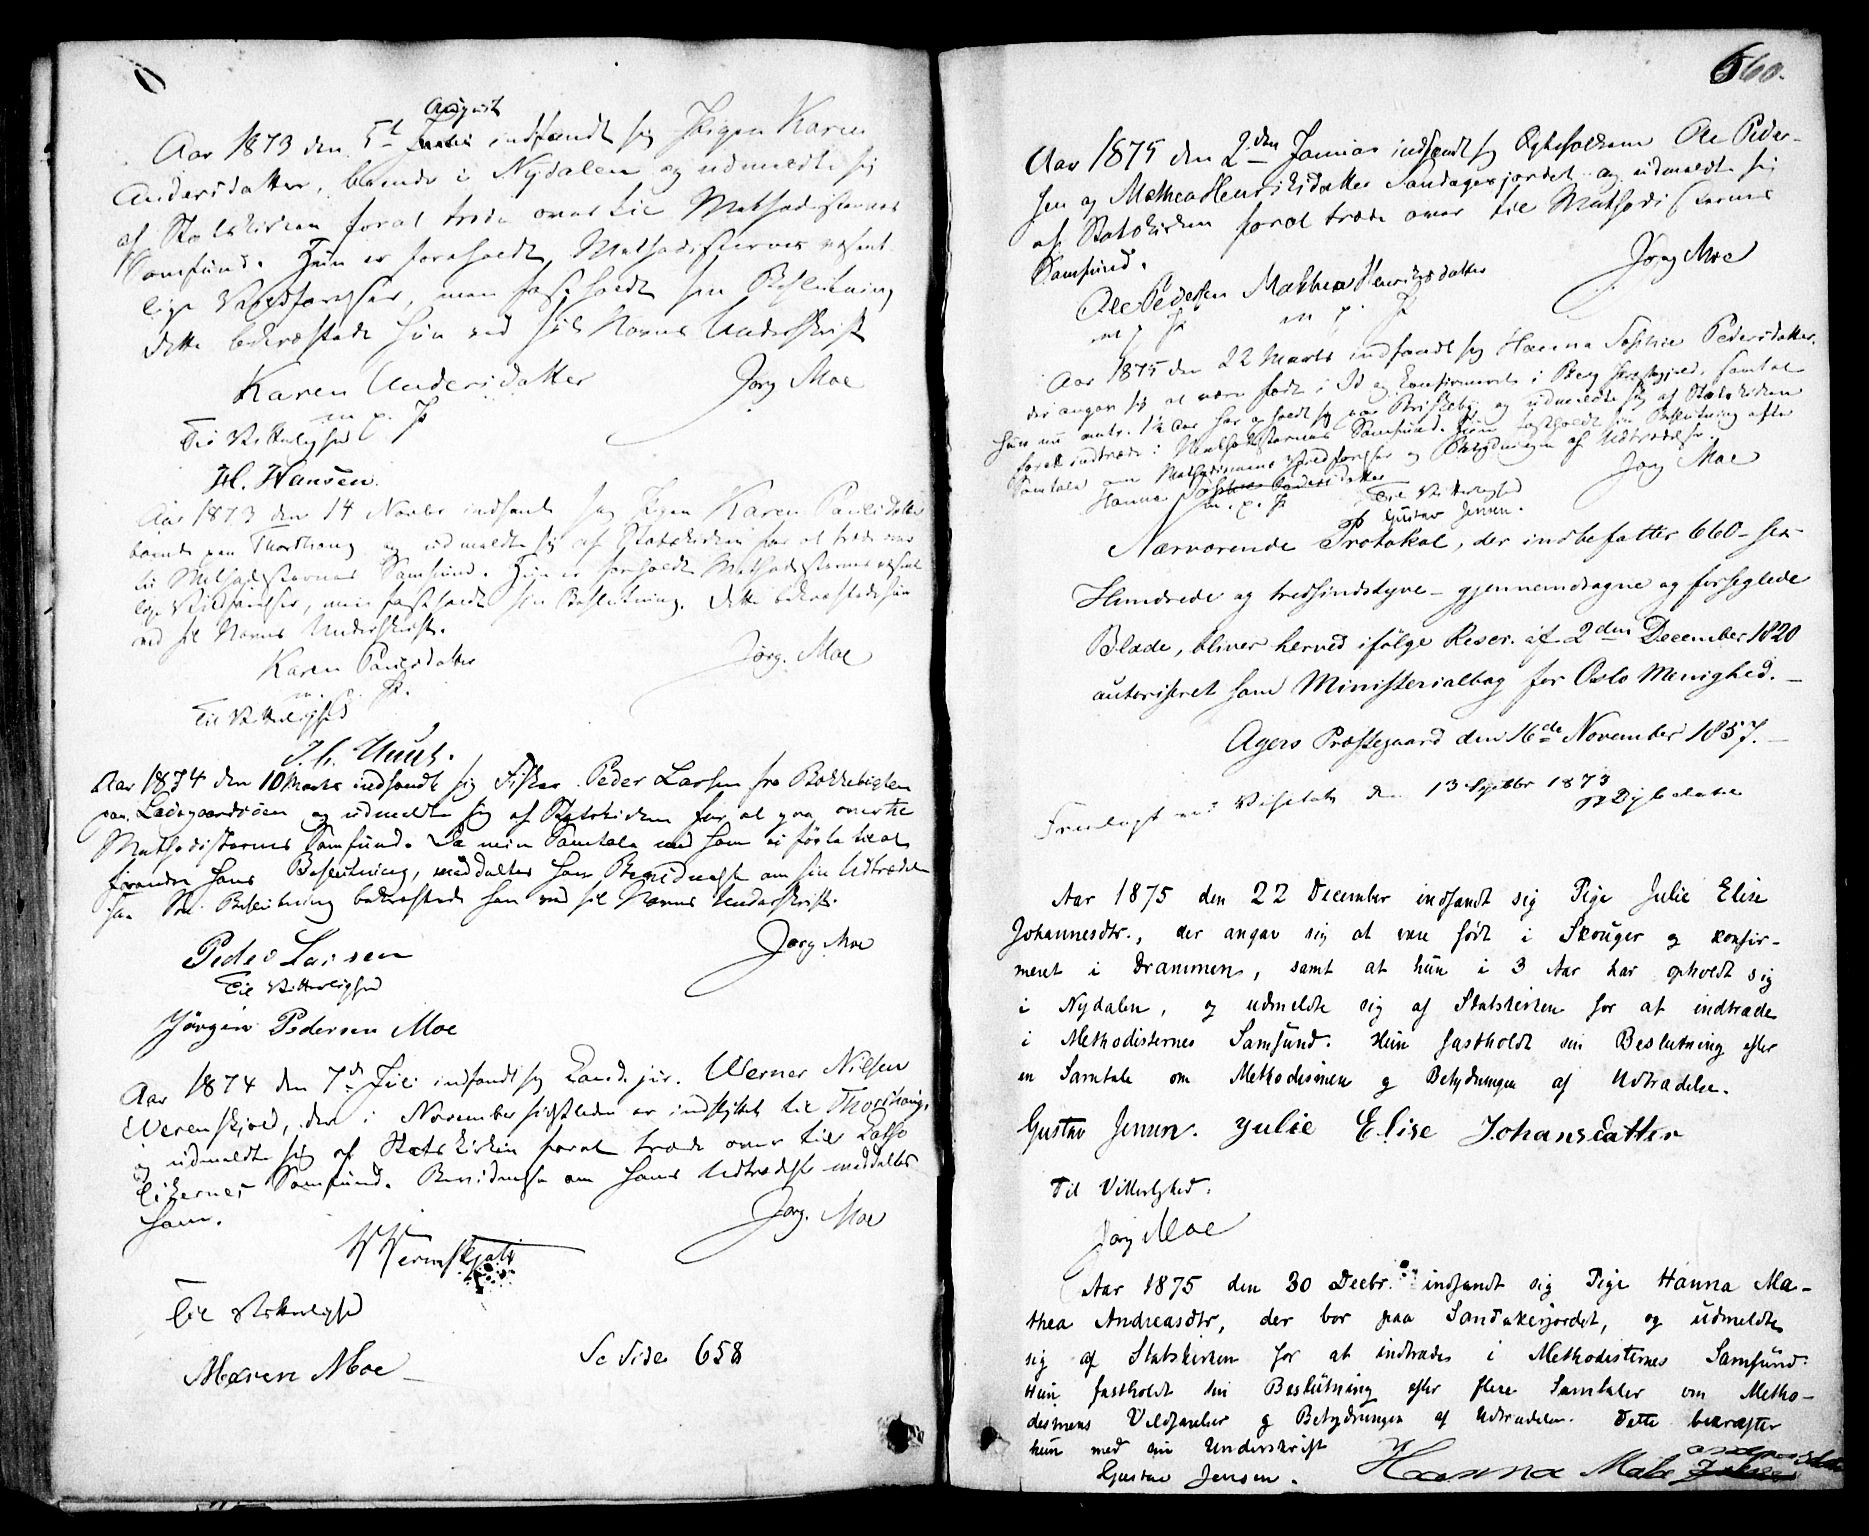 Aar 1873 den 5t August indfandt sig Pigen Karen
Andersdatter, boende i Nydalen og udmeldte sig
af Statskirken forat træde over til Methodisternes
Samfund. Hun er foreholdt Methodisternes væsent
lige Vildfarelser, men fastholdt sin Beslutning
dette bekræftede hun ved sit Navns Underskrift
Karen Andersdatter Jørg Moe
m. p. P.
Til Vitterlighed
H. Hansen.
Aar 1873 den 14 Novbr indfandt sig Pigen Karen Paulsdatter
boende paa Thorshaug og udmeldte sig af Statskirken for at træde over
til Methodisternes Samfund. Hun er foreholdt Methodisternes væsent
lige Vildfarelser, men fastholdt sin Beslutning. Dette bekræftede hun
ved sit Navns Underskrift.
Karen Paulsdatter Jørg. Moe
m. p. P.
Til Vitterlighed
Aar 1874 den 10 Marts indfandt sig Fisker Peder Larsen fra Bekkebugten
paa Ladegaardsøen og udmeldte sig af Statskirken for at gaa over til
Methodisternes Samfund. Da min Samtale med ham ei førte til at
forandre hans Beslutning, meddeltes ham Bevidnelse om sin Udtrædelse
Beslutning bekræftede han ved sit Navns Underskrift.
Peder Larsen Jørg Moe
Til Vitterlighed
Jørgen Pedersen Moe
Aar 1874 den 7de Juli indfandt sig Cand. jur. Werner Nilsen
Werenskjold, der i November sidstleden er indflyttet til Thorshaug,
og udmeldte sig af Statskirken forat træde over til Catho
likernes Samfund. Bevidnelse om hans Udtrædelse meddeltes
ham. Jørg. Moe
W Werenskjold
Til Vitterlighed
Maren Moe
Se Side 658
660.
Aar 1875 den 2den Januar indfandt sig Ægtefolkene Ole Peder-
sen og Mathea Henriksdatter Sandagerjordet og udmeldte sig
af Statskirken forat træde over til Methodisternes
Samfund. Jørg Moe
Ole Pedersen Mathea Henriksdatter
m p P m p P
Aar 1875 den 22 Marts indfandt sig Hanna Sophie Pedersdatter,
der angav sig at være født i Id og Konfirmeret i Berg Præstegjeld, samt at
hun nu omtr. 1½ Aar har opholdt sig paa Briskeby, og udmeldte sig af Statskirken
forat indtræde i Methodisternes Samfund. Hun fastholdt sin Beslutning efter
Samtale om Methodismens Vildfarelser og Betydningen af Udtrædelse.
Hanna Sophie Pedersdatter Jørg Moe
m. p. P Til Vitterlighed
Gustav Jensen.
Nærværende Protokol, der indbefatter 660 – sex
Hundrede og tredsindstyve – gjennemdragne og forseglede
Blade, bliver herved ifølge Rescr. af 2den December 1820
autoriseret som Ministerialbog for Oslo Menighed. –
Agers Præstegaard den 16de November 1857. –
Fremlagt ved Visitats den 13 Septbr 1873
Aar 1875 den 22 December indfandt sig Pige Julie Elise
Johannesdtr., der angav sig at være født i Skouger og konfir-
meret i Drammen, samt at hun i 3 Aar har opholdt sig
i Nydalen, og udmeldte sig af Statskirken for at indtræde
i Methodisternes Samfund. Hun fastholdt sin Beslutning efter
en Samtale om Methodismen og Betydningen af Udtrædelse.
Gustav Jensen. Julie Elise Johansdatter
Til Vitterlighed.
Jørg Moe
Aar 1875 den 30 Decbr. indfandt sig Pige Hanna Ma-
thea Andreasdtr, der bor paa Sandakerjordet, og udmeldte
sig af Statskirken for at indtræde i Methodisternes Samfund.
Hun fastholdt sin Beslutning efter flere Samtaler om Metho-
dismens Vildfarelser og Betydningen af Udtrædelse. Dette bekræfter
hun med sin Underskrift
Gustav Jensen. Hanna Mate